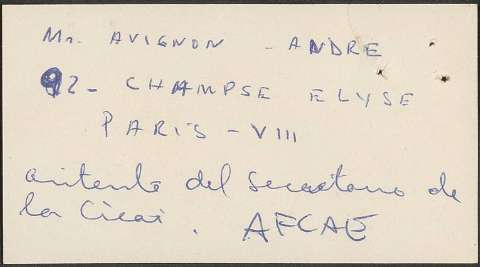 Mr. AVIGNON - ANDRE
92 - CHAMPSE ELYSE
PARIS - VIII
del secretario de
la Cicai. AFCAE